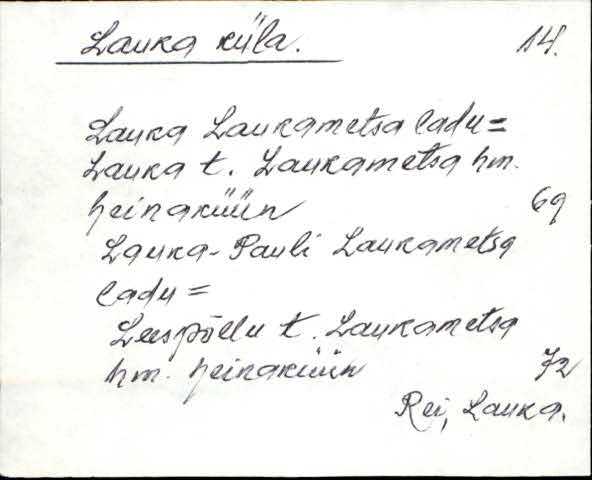 Lauka küla. 14.
Lauka Laukametsa ladu =
Lauka t. Laukametsa hm.
heinaküün 69
Lauka-Pauli Laukametsa
ladu =
Leespõllu t. Laukametsa
hm. heinaküün 72
Rei, Lauka.